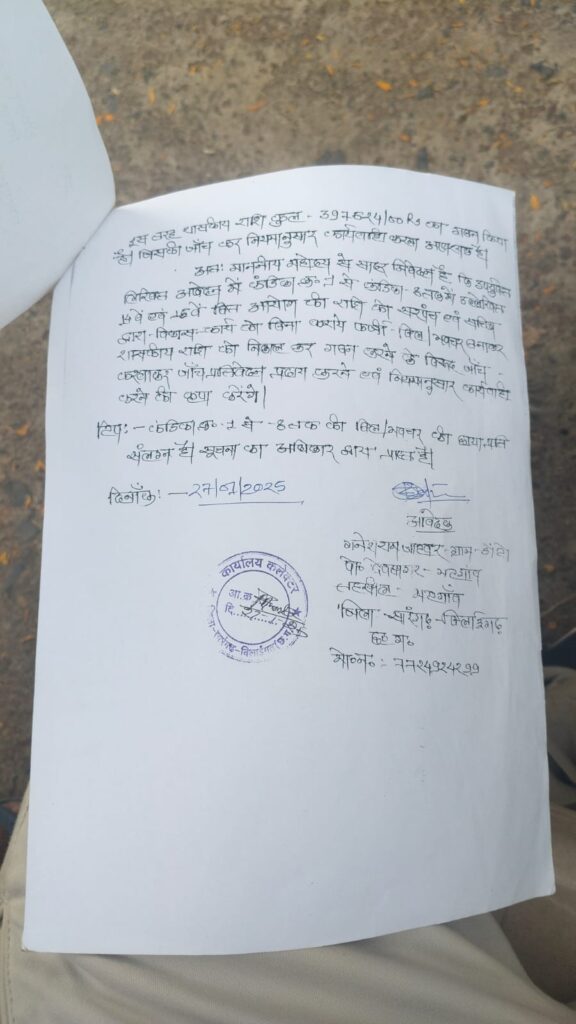 इस तरह शासकीय राशि कुल - 397624/00 Rs का गबन किया
है। जिसकी जाँच कर नियमानुसार कार्यवाही करना आवश्यक है।
अतः माननीय महोदय से सादर निवेदन है कि उपरोक्त
लिखित आवेदन में कंडिका क्र. 1 से कंडिका 8 तक में उल्लेखित
15वें एवं 16वें वित्त आयोग की राशि को सरपंच एवं सचिव
द्वारा विकास कार्य को बिना कराये फर्जी बिल/भवचर लगाकर
शासकीय राशि को निकाल कर गबन करने के विरुद्ध जाँच
करवाकर जाँच प्रतिवेदन प्रदाय करने एवं नियमानुसार कार्यवाही
करने की कृपा करेंगे।
टिप :- कंडिका क्र. 1 से 8 तक की बिल/भवचर की छायाप्रति
संलग्न है। सूचना का अधिकार प्राप्त है।
दिनाँक :- 27/
/2025
आवेदक
गनेशराम जाहवर ग्राम-
पो. देवसागर - भटगाँव
तहसील - भटगाँव
जिला - सारंगढ़ - बिलाईगढ़
छ० ग०
मो.नं. :- 7724924299
कार्यालय कलेक्टर
आ.क्र.
दि.
सारंगढ़-बिलाईगढ़ (छ.ग.)